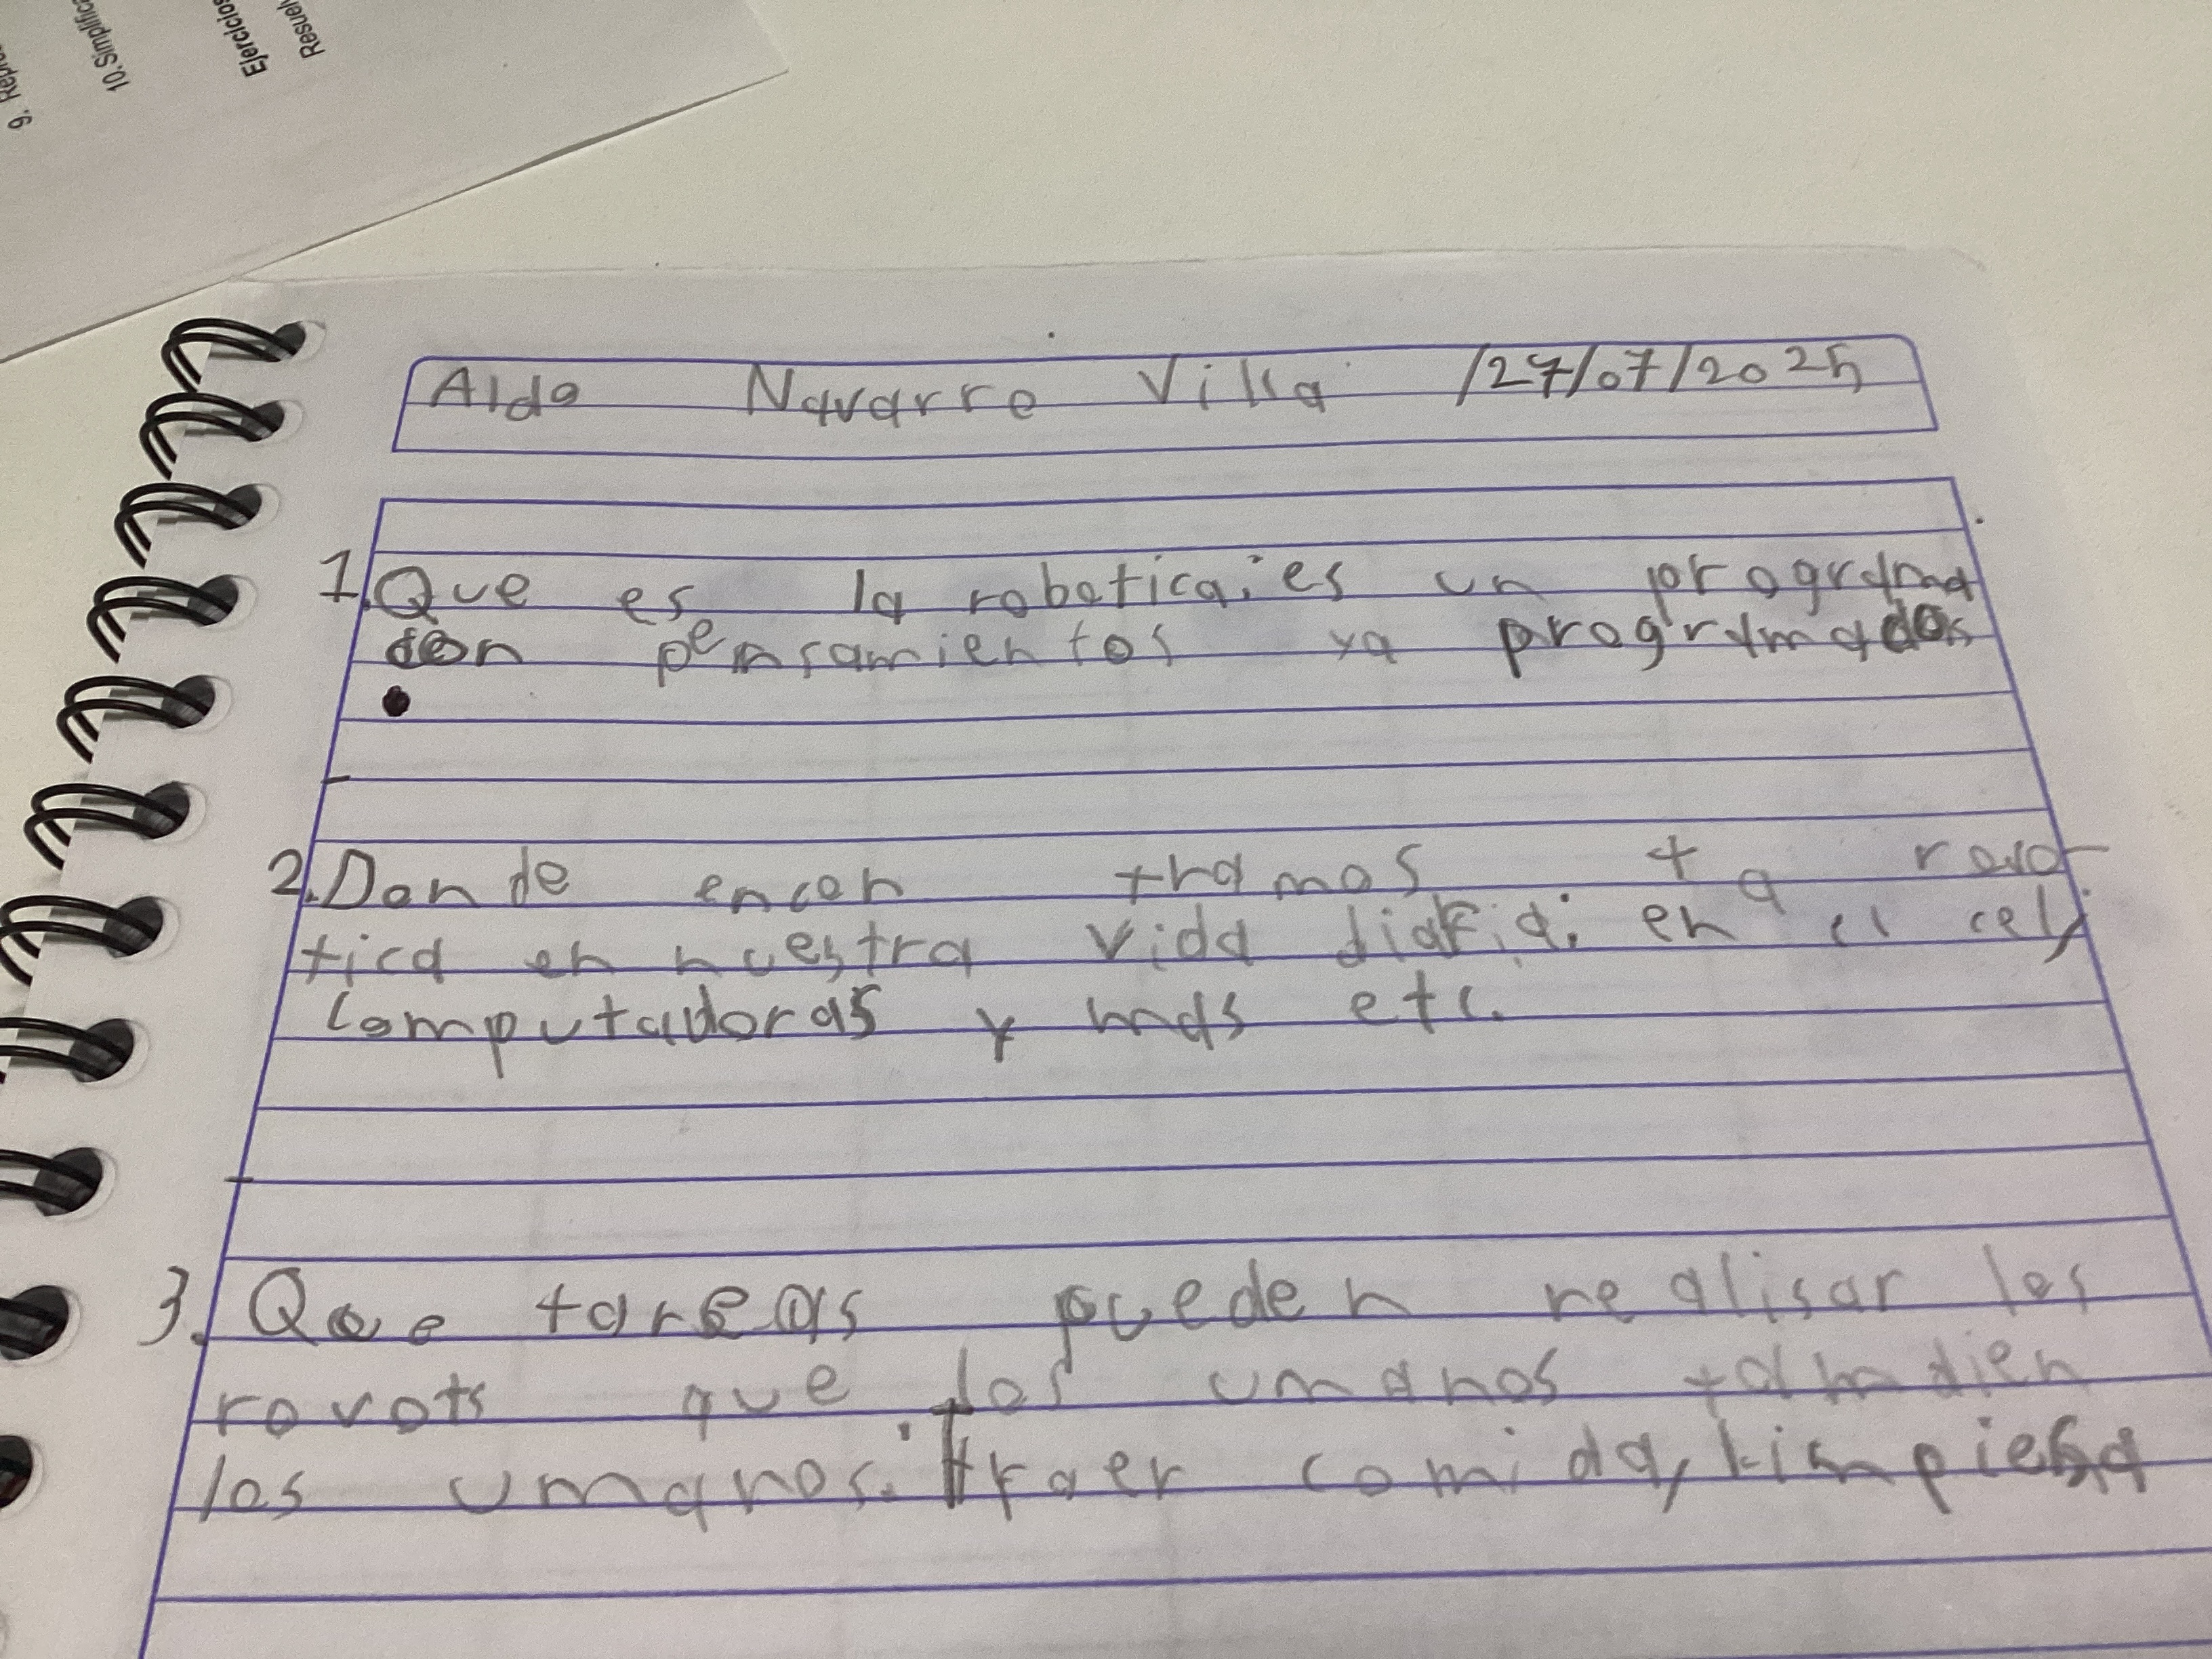 9. Repre
10. Simplifica
Ejercicios
Resuel
Aldo Navarro Villa /27/07/2025
1. Que es la robotica: es un programa
con pensamientos ya programados
2. Donde encon tramos la rovo-
tica en nuestra vida diaria: en el cel,
computadoras y mas etc.
3. Que tareas pueden realisar los
rovots que los umanos tambien
los umanos: traer comida, limpiesa